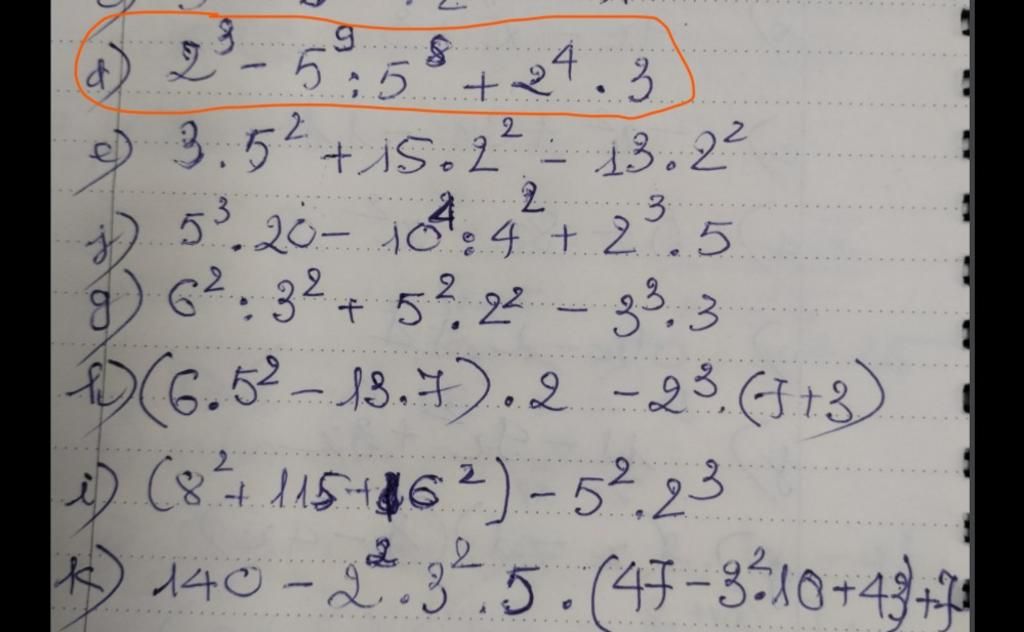 d) 2³ - 5⁹ : 5⁸ + 2⁴ . 3
e) 3 . 5² + 15 . 2² - 13 . 2²
j) 5³ . 20 - 10² : 4² + 2³ . 5
g) 6² : 3² + 5² . 2² - 3³ . 3
h) (6 . 5² - 13 . 7) . 2 - 2³ . (7 + 3)
i) (8² + 115 + 16²) - 5² . 2³
k) 140 - 2² . 3² . 5 . (47 - 3² . 10 + 43) + 7